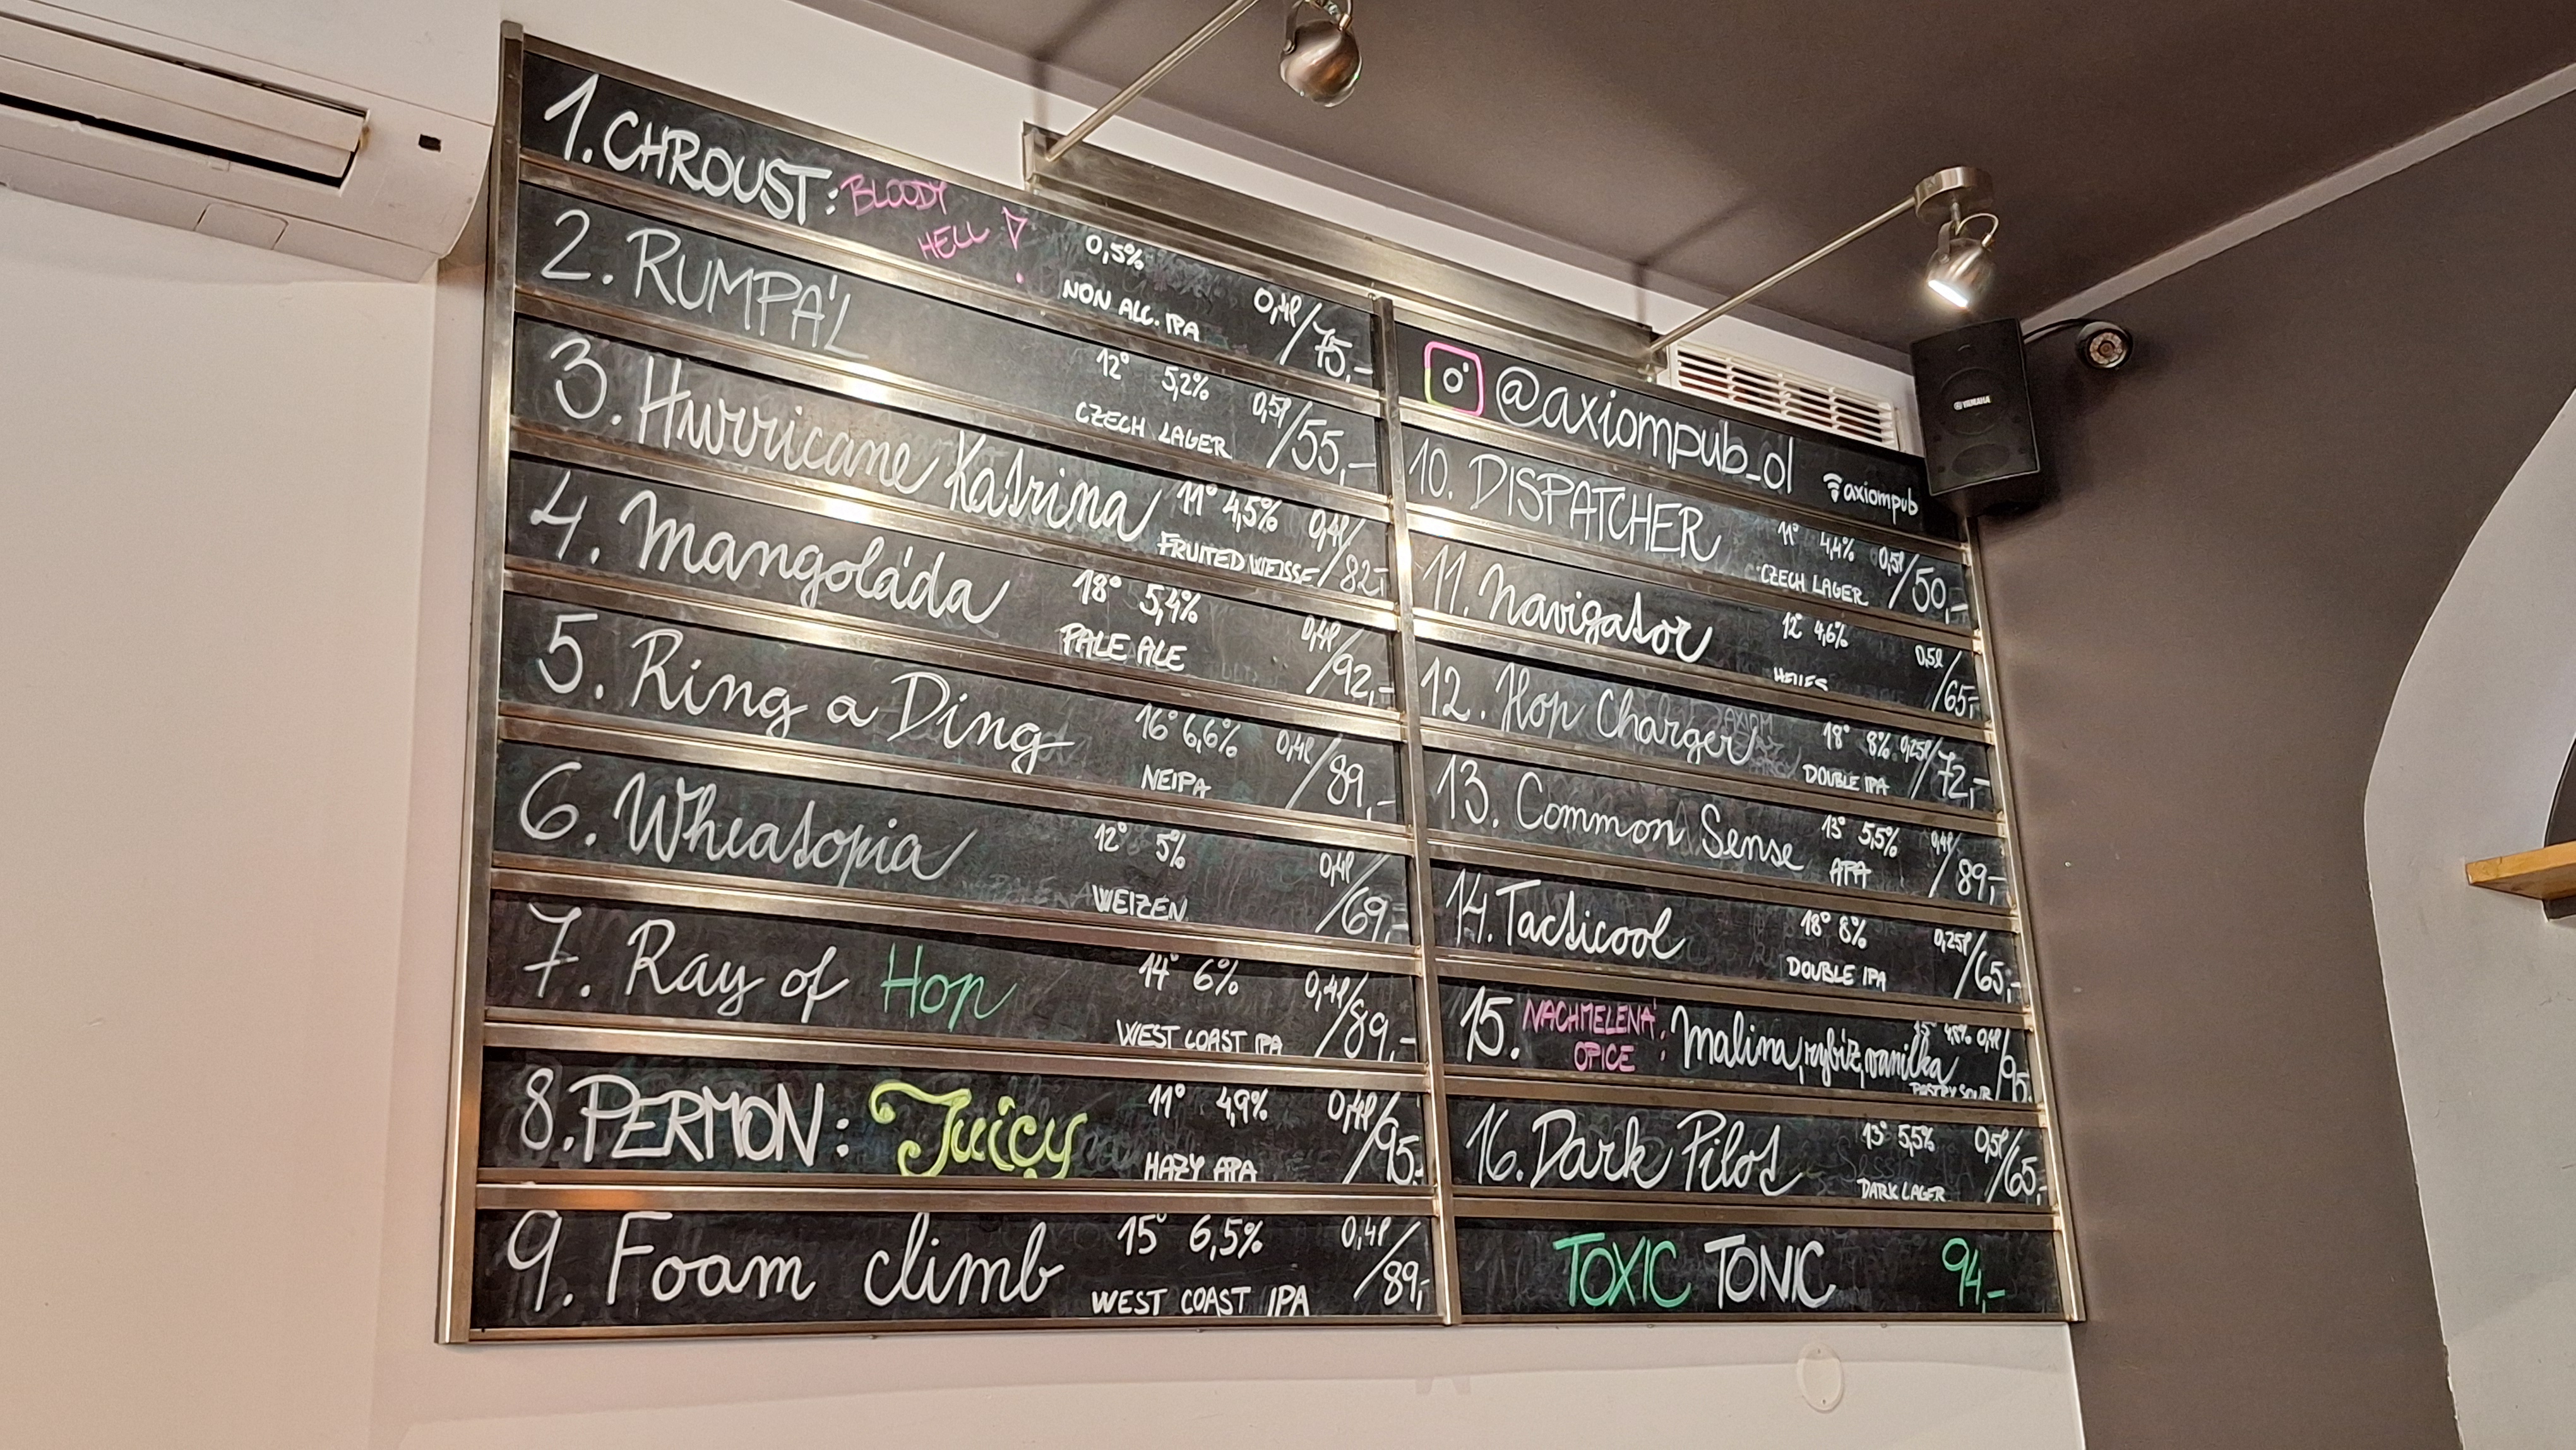 1. CHROUST: BLOODY HELL! 0,5% 0,4l/75,-
NON ALC. IPA
2. RUMPÁL 12° 5,2% 0,5l/55,-
CZECH LAGER
3. Hurricane Katrina 11° 4,5% 0,4l/82,-
FRUITED WEISSE
4. Mangoláda 18° 5,4% 0,4l/92,-
PALE ALE
5. Ring a Ding 16° 6,6% 0,4l/89,-
NEIPA
6. Wheatopia 12° 5% 0,4l/69,-
WEIZEN
7. Ray of Hop 14° 6% 0,4l/89,-
WEST COAST IPA
8. PERMON: Juicy 11° 4,9% 0,4l/95,-
HAZY APA
9. Foam climb 15° 6,5% 0,4l/89,-
WEST COAST IPA
@axiompub_ol axiompub
10. DISPATCHER 11° 4,4% 0,5l/50,-
CZECH LAGER
11. Navigator 12° 4,6% 0,5l/65,-
HELLES
12. Hop Charger 18° 8% 0,25l/72,-
DOUBLE IPA
13. Common Sense 13° 5,5% 0,4l/89,-
APA
14. Tacticool 18° 8% 0,25l/65,-
DOUBLE IPA
15. NACHMELENÁ OPICE: Malina, rybíz, vanilka 15° 0,4l/95,
PASTRY SOUR
16. Dark Pilot 13° 5,5% 0,5l/65,-
DARK LAGER
TOXIC TONIC 94,-
YAMAHA